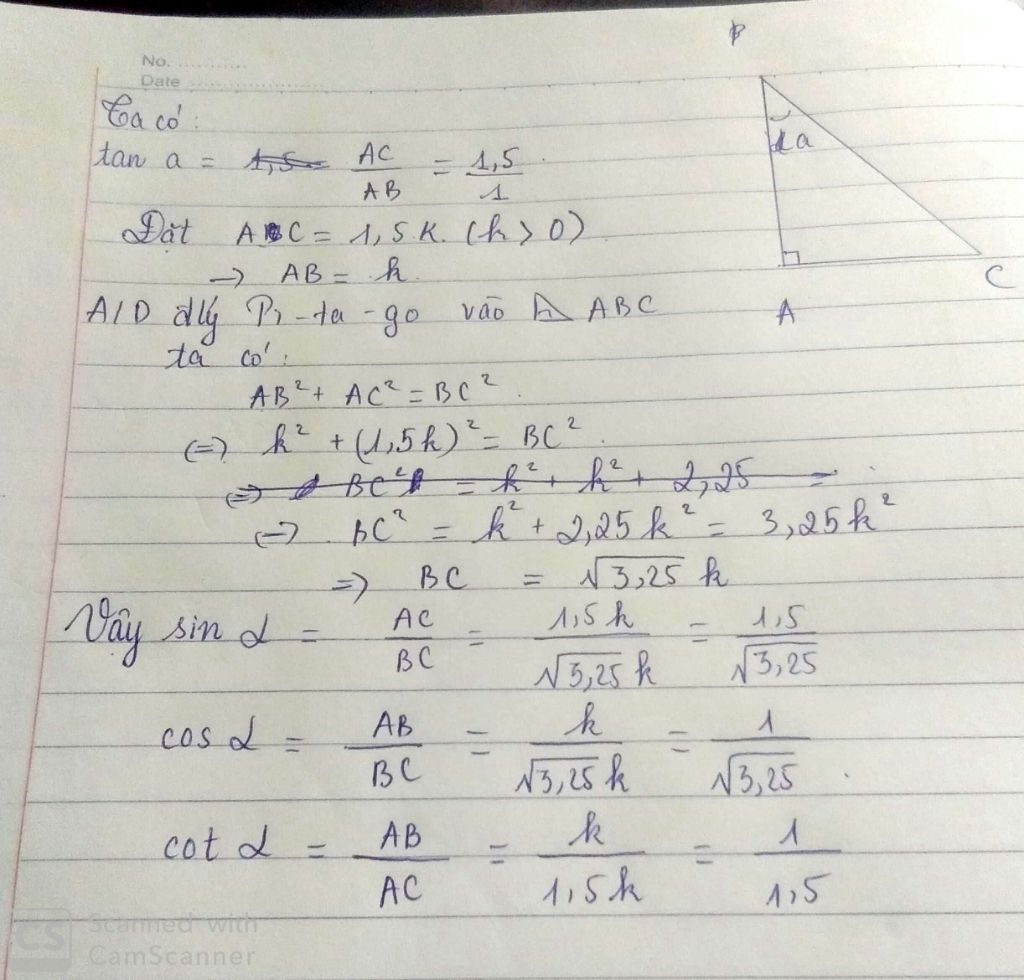 No. ............
Date ........................
B
Ta có:
tan a = ~~1,5~~ AC/AB = 1,5/1
a
Đặt AC = 1,5 k. (k > 0)
→ AB = k.
C
A/D đlý Pi-ta-go vào ⊿ ABC
A
ta có:
AB² + AC² = BC².
(=) k² + (1,5k)² = BC².
~~(=) BC² = k² + k² + 2,25 =~~
(=) BC² = k² + 2,25k² = 3,25k²
=) BC = √3,25 k
Vậy sin α = AC/BC = 1,5k/√3,25 k = 1,5/√3,25
cos α = AB/BC = k/√3,25 k = 1/√3,25.
cot α = AB/AC = k/1,5k = 1/1,5
CS Scanned with
CamScanner